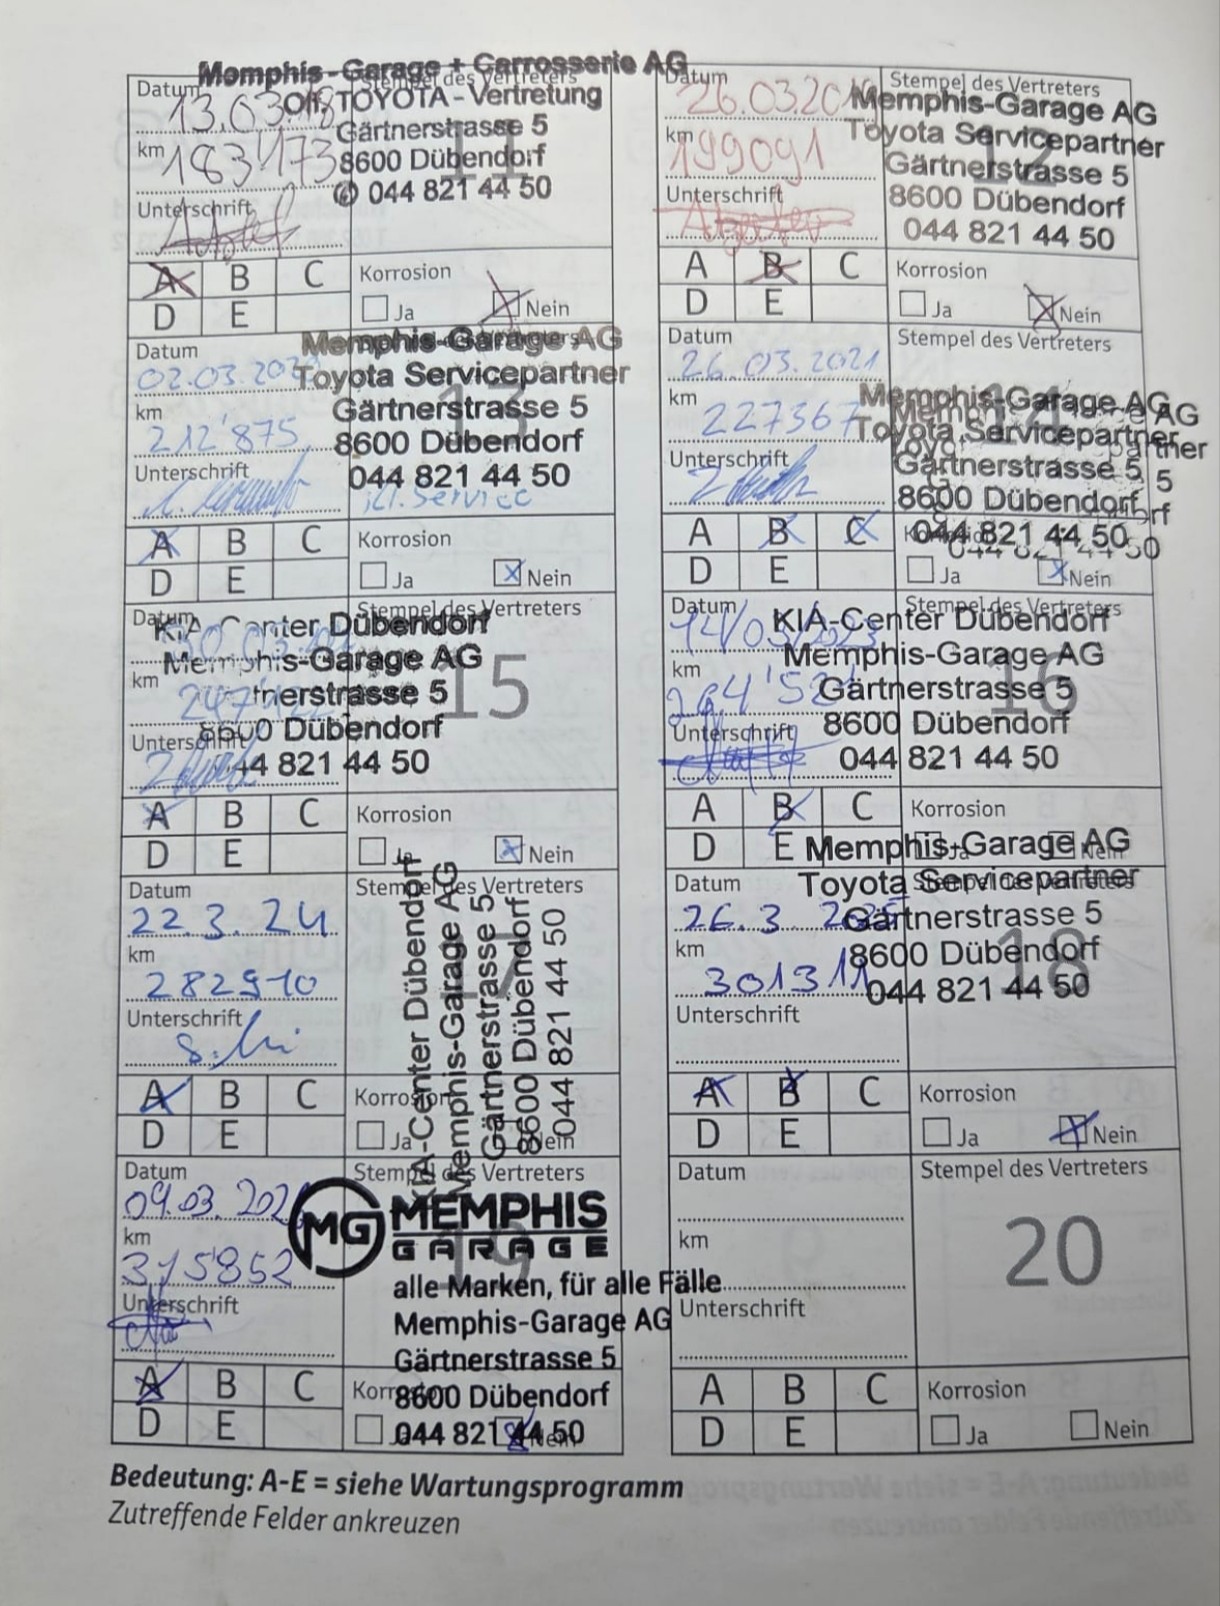 Memphis-Garage + Carrosserie AG
Datum
Stempel des Vertreters
13.03.18
Off. TOYOTA-Vertretung
Gärtnerstrasse 5
km
183'173
8600 Dübendorf
044 821 44 50
Unterschrift
11
A B C
D E
Korrosion
Ja Nein
Datum
Stempel des Vertreters
26.03.20
Memphis-Garage AG
Toyota Servicepartner
km
199091
Gärtnerstrasse 5
Unterschrift
8600 Dübendorf
044 821 44 50
12
A B C
D E
Korrosion
Ja Nein
Datum
Memphis-Garage AG
02.03.202
Toyota Servicepartner
km
Gärtnerstrasse 5
212'875
8600 Dübendorf
Unterschrift
044 821 44 50
Service
13
A B C
D E
Korrosion
Ja Nein
Datum
Stempel des Vertreters
26.03.2021
km
Memphis-Garage AG
227367
Toyota Servicepartner
Gärtnerstrasse 5
Unterschrift
8600 Dübendorf
044 821 44 50
14
A B C
D E
Ja Nein
Datum
Stempel des Vertreters
KIA-Center Dübendorf
Memphis-Garage AG
km
tnerstrasse 5
8600 Dübendorf
Unterschrift
44 821 44 50
15
A B C
D E
Korrosion
Ja Nein
Datum
Stempel des Vertreters
KIA-Center Dübendorf
Memphis-Garage AG
km
264'52
Gärtnerstrasse 5
Unterschrift
8600 Dübendorf
044 821 44 50
16
A B C
D E
Korrosion
Ja Nein
Datum
Stempel des Vertreters
22.3.24
km
282910
Unterschrift
KIA-Center Dübendorf
Memphis-Garage AG
Gärtnerstrasse 5
8600 Dübendorf
044 821 44 50
17
A B C
D E
Korrosion
Ja Nein
Memphis-Garage AG
Datum
Toyota Servicepartner
26.3.
Gärtnerstrasse 5
km
8600 Dübendorf
301311
044 821 44 50
Unterschrift
18
A B C
D E
Korrosion
Ja Nein
Datum
Stempel des Vertreters
09.03.202
MG MEMPHIS
GARAGE
km
315'852
alle Marken, für alle Fälle
Unterschrift
Memphis-Garage AG
Gärtnerstrasse 5
8600 Dübendorf
044 821 44 50
19
A B C
D E
Nein
Datum
Stempel des Vertreters
km
Unterschrift
20
A B C
D E
Korrosion
Ja Nein
Bedeutung: A-E = siehe Wartungsprogramm
Zutreffende Felder ankreuzen